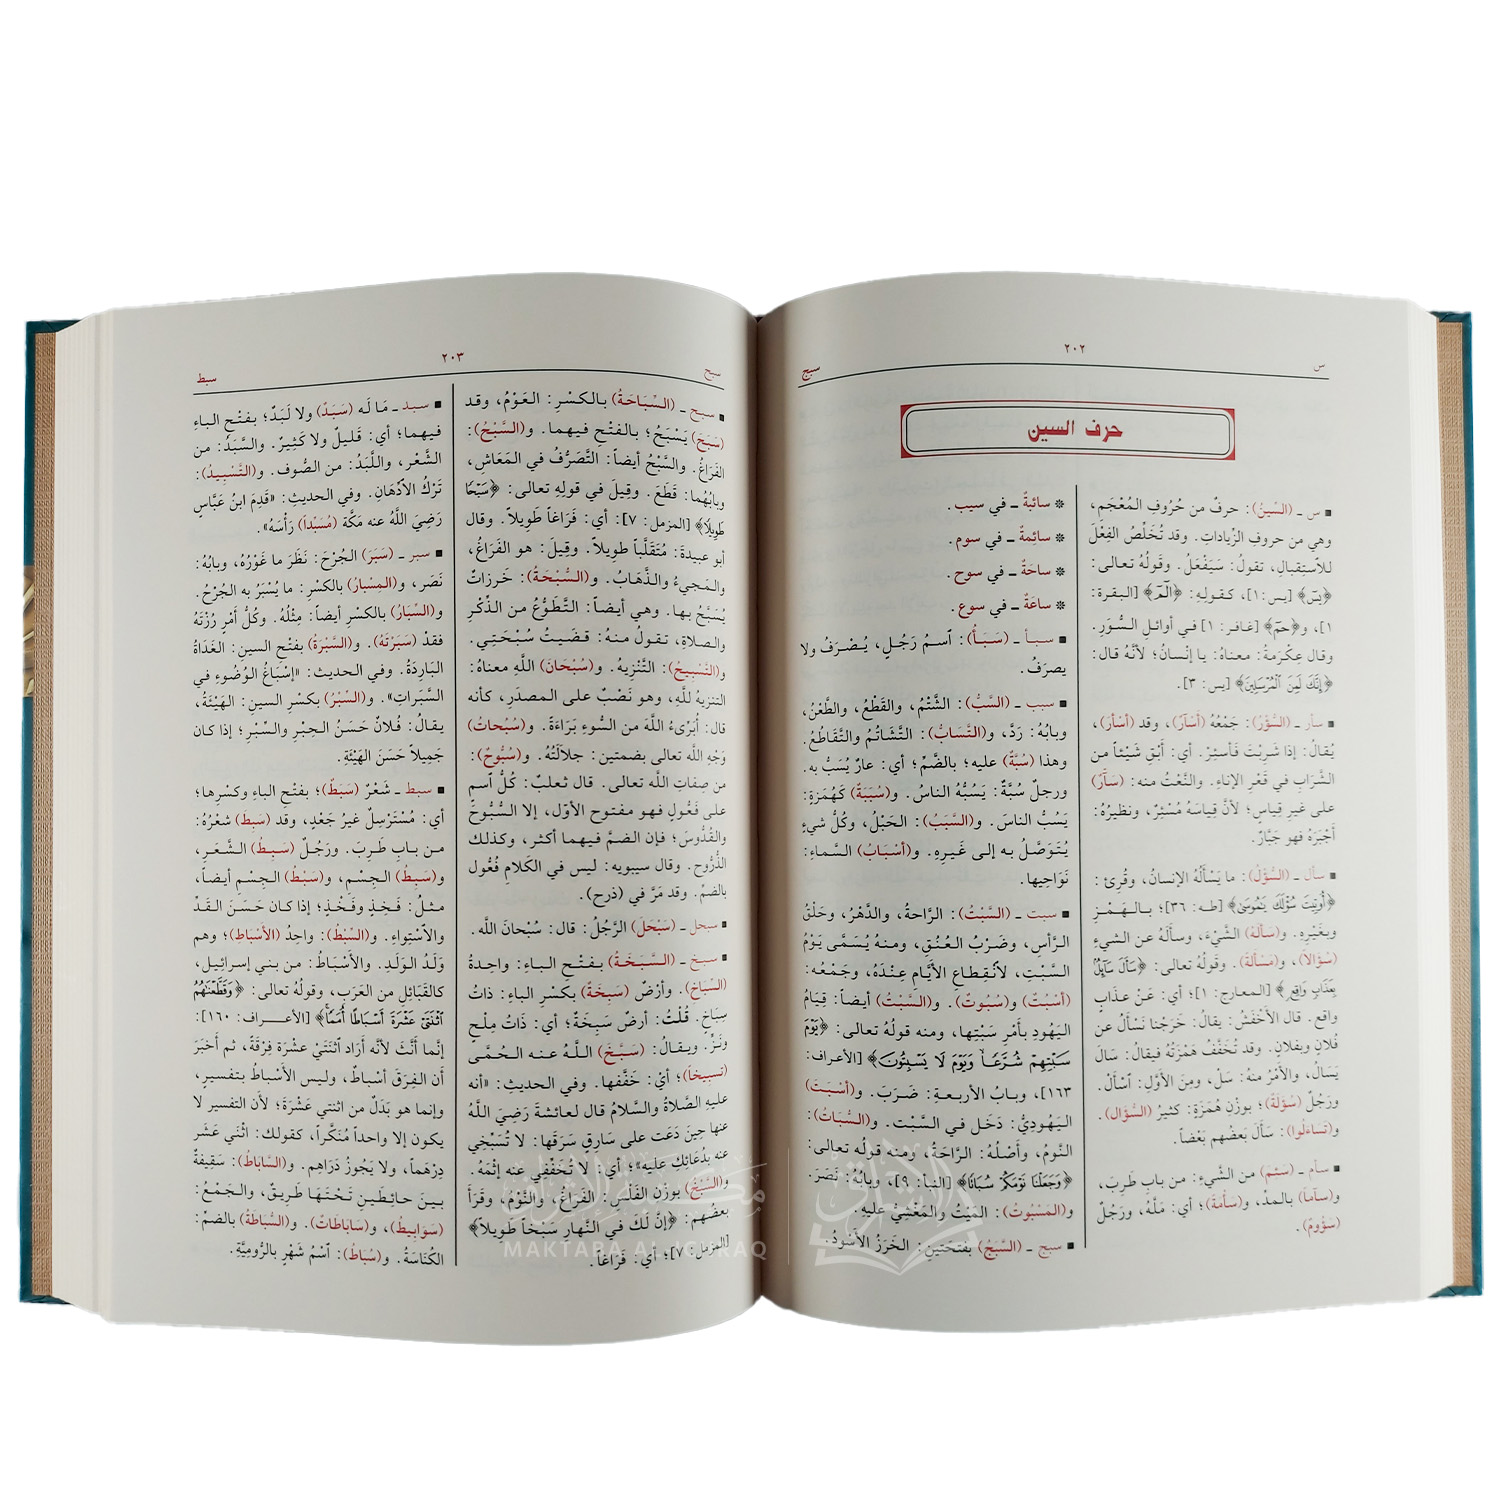 ٢٠٢
س
سبج
حرف السين
■ س ـ (السِّينُ): حرفٌ من حُرُوفِ المُعْجَمِ،
وهي من حروفِ الزِّياداتِ. وقد تُخَلِّصُ الفِعْلَ
للاَسْتِقبالِ، تقولُ: سَيَفْعَلُ. وقَولُهُ تعالى:
﴿يسٓ﴾ [يس: ١]، كـقـولِـهِ: ﴿الٓمٓ﴾ [البقرة:
١]، و﴿حمٓ﴾ [غافر: ١] في أوائلِ السُّوَرِ.
وقال عِكْرِمَةُ: معناهُ: يا إنْسانُ؛ لأنَّهُ قال:
﴿إِنَّكَ لَمِنَ الْمُرْسَلِينَ﴾ [يس: ٣].
■ سأر ـ (السُّؤْرُ): جَمْعُهُ (أَسْآرٌ)، وقد (أَسْأَرَ)،
يُقالُ: إذا شَرِبْتَ فَأَسْئِرْ. أي: أَبْقِ شَيْئاً من
الشَّرَابِ في قَعْرِ الإناءِ. والنَّعْتُ منه: (سَآرٌ)
على غيرِ قِياسٍ؛ لأنَّ قِيَاسَهُ مُسْئِرٌ، ونظيرُهُ:
أَجْبَرَهُ فهو جَبَّارٌ.
■ سأل ـ (السُّؤْلُ): ما يَسْأَلُهُ الإنسانُ، وقُرِئَ:
﴿أُوتِيتَ سُؤْلَكَ يَٰمُوسَىٰ﴾ [طه: ٣٦]؛ بـالـهَـمْـزِ
وبغَيْرِهِ. و(سَأَلَهُ) الشَّيْءَ، وسأَلَهُ عن الشيءِ
(سُؤَالاً)، و(مَسْأَلَةً). وقَولُهُ تعالى: ﴿سَأَلَ سَآئِلٌۢ
بِعَذَابٍ وَاقِعٍ﴾ [المعارج: ١]؛ أي: عَنْ عذابٍ
واقعٍ. قال الأخْفَشُ: يقالُ: خَرَجْنا نَسْأَلُ عن
فُلانٍ وبفلانٍ. وقد تُخَفَّفُ هَمْزَتُهُ فيقالُ: سَالَ
يَسَالُ، والأَمْرُ منهُ: سَلْ، ومِنَ الأَوَّلِ: اَسْأَلْ.
ورَجُلٌ (سُؤَلَةٌ)؛ بوزْنِ هُمَزَةٍ: كثيرُ (السُّؤَالِ).
و(تَساءَلُوا): سَأَلَ بَعْضُهم بَعْضاً.
■ سأم ـ (سَئِمَ) من الشَّيءِ: من بابِ طَرِبَ،
و(سآماً) بالمدِّ، و(سَأْمَةً)؛ أي: مَلَّهُ، ورَجُلٌ
(سَؤُومٌ).
* سائبةٌ ـ في سيب.
* سائمةٌ ـ في سوم.
* ساحَةٌ ـ في سوح.
* ساعَةٌ ـ في سوع.
■ سبأ ـ (سَبَأُ): اَسمُ رَجُـلٍ، يُـصْـرَفُ ولا
يصرَفُ.
■ سبب ـ (السَّبُّ): الشَّتْمُ، والقَطْعُ، والطَّعْنُ،
وبابُهُ: رَدَّ، و(التَّسَابُّ): التَّشاتُمُ والتَّقَاطُعُ.
وهذا (سُبَّةٌ) عليه؛ بالضَّمِّ؛ أي: عارٌ يُسَبُّ به.
ورجلٌ سُبَّةٌ: يَسُبُّهُ الناسُ. و(سُبَبَةٌ) كَهُمَزَةٍ:
يَسُبُّ الناسَ. و(السَّبَبُ): الحَبْلُ، وكُلُّ شيءٍ
يُتَوَصَّلُ بـه إلى غَيرِهِ. و(أَسْبَابُ) السَّماءِ:
نَوَاحِيها.
■ سبت ـ (السَّبْتُ): الرَّاحةُ، والدَّهْرُ، وحَلْقُ
الرَّأسِ، وضَرْبُ العُنُقِ، ومنهُ يُسَمَّى يَوْمُ
السَّبْتِ، لاَنْقِطاعِ الأَيَّامِ عِنْدَهُ، وجَمْعُهُ:
(أَسْبُتٌ) و(سُبُوتٌ). و(السَّبْتُ) أيضاً: قِيَامُ
اليَهُودِ بأَمْرِ سَبْتِها، ومنه قولُهُ تعالى: ﴿يَوْمَ
سَبْتِهِمْ شُرَّعًا وَيَوْمَ لَا يَسْبِتُونَ﴾ [الأعراف:
١٦٣]، وبـابُ الأربـعـةِ: ضَـرَبَ. و(أَسْبَتَ)
اليَهُودِيُّ: دَخَلَ في السَّبْتِ. و(السُّبَاتُ):
النَّومُ، وأَصْلُهُ: الرَّاحَةُ، ومنه قولُه تعالى:
﴿وَجَعَلْنَا نَوْمَكُمْ سُبَاتًا﴾ [النبأ: ٩]، وبابُهُ: نَصَرَ.
و(المَسْبُوتُ): المَيْتُ والمَغْشِيُّ عليهِ.
■ سبج ـ (السَّبَجُ) بفتحَتينِ: الخَرَزُ الأَسْوَدُ.
٢٠٣
سبح
سبط
■ سبح ـ (السِّبَاحَةُ) بـالـكـسْرِ: العَوْمُ، وقـد
(سَبَحَ) يَسْبَحُ؛ بـالـفتْحِ فـيـهما. و(السَّبْحُ):
الفَرَاغُ. والسَّبْحُ أيضاً: التَّصَرُّفُ في المَعَاشِ،
وبابُهُما: قَطَعَ. وقِيلَ في قولِهِ تعالى: ﴿سَبْحًا
طَوِيلًا﴾ [المزمل: ٧]: أي: فَرَاغاً طَوِيلاً. وقال
أبو عبيدةَ: مُتَقَلَّباً طويلاً. وقِيلَ: هو الفَرَاغُ،
والـمَجيءُ والذَّهَابُ. و(السُّبْحَةُ): خَرَزاتٌ
يُسَبَّحُ بـها. وهي أيضاً: التَّطَوُّعُ من الذِّكْرِ
والصلاةِ، تـقـولُ مـنـهُ: قـضَـيـتُ سُبْحَتِـي.
و(التَّسْبِيحُ): التَّنْزِيهُ. و(سُبْحَانَ) اللَّهِ معناهُ:
التنزيهُ للَّهِ، وهو نَصْبٌ على المصدَرِ، كأنه
قال: أُبَرِّئُ اللَّهَ من السُّوءِ بَرَاءَةً. و(سُبُحاتُ)
وَجْهِ اللَّه تعالى بضمتينِ: جلالَتُهُ. و(سُبُّوحٌ):
من صِفاتِ اللَّه تعالى. قال ثعلبٌ: كُلُّ اَسمٍ
على فَعُّولٍ فهو مفتوحُ الأوّلِ، إلا السُّبُّوحَ
والقُدُّوسَ؛ فإن الضمَّ فيهما أكثر، وكذلك
الذُّرُّوح. وقال سيبويه: ليس في الكلامِ فُعُّول
بالضمِّ. وقد مَرَّ في (ذرح).
■ سبحل ـ (سَبْحَلَ) الرَّجُلُ: قال: سُبْحانَ اللَّه.
■ سبخ ـ (السَّبَخَةُ) بـفـتْحِ الـبـاءِ: واحِـدةُ
(السِّبَاخِ). وأرْضٌ (سَبِخَةٌ) بكَسْرِ الباءِ: ذاتُ
سِبَاخٍ. قُلْتُ: أرضٌ سَبِخَةٌ؛ أي: ذَاتُ مِلْحٍ
ونَزٍّ. ويـقـالُ: (سَبَّخَ) اللَّهُ عـنـه الـحُـمَّـى
(تسبيخاً)؛ أيْ: خَفَّفَها. وفي الحديثِ: «أنه
عليهِ الصَّلاةُ والسَّلامُ قال لعائشةَ رَضِيَ اللَّهُ
عنها حِينَ دَعَت على سَارِقٍ سَرَقَها: لا تُسَبِّخِي
عنه بِدُعَائِكِ عليهِ»؛ أي: لا تُخَفِّفِي عنه إثْمَهُ.
و(السَّبْخُ) بوزْنِ الفَلْسِ: الفَرَاغُ، والنَّوْمُ، وقَرَأَ
بعضُهم: ﴿إِنَّ لَكَ في النَّهارِ سَبْخاً طَوِيلاً﴾
[المزمل: ٧]؛ أي: فَرَاغاً.
■ سبد ـ مَا لَه (سَبَدٌ) ولا لَبَدٌ؛ بفتْحِ الباءِ
فيهما؛ أي: قَليلٌ ولا كَثِيرٌ. والسَّبَدُ: من
الشَّعْرِ، واللَّبَدُ: من الصُّوفِ. و(التَّسْبِيدُ):
تَرْكُ الاَدِّهَانِ. وفي الحديثِ: «قَدِمَ ابنُ عَبَّاسٍ
رَضِيَ اللَّهُ عنه مَكَّةَ (مُسَبِّداً) رَأْسَهُ».
■ سبر ـ (سَبَرَ) الجُرْحَ: نَظَرَ ما غَوْرُهُ، وبابُهُ:
نَصَر، و(المِسْبارُ) بالكسْرِ: ما يُسْبَرُ به الجُرْحُ.
و(السِّبَارُ) بالكسْرِ أيضاً: مِثْلُهُ. وكُلُّ أَمْرٍ رُزْتَهُ
فقدْ (سَبَرْتَهُ). و(السَّبْرَةُ) بفتْحِ السين: الغَدَاةُ
البَارِدَةُ. وفي الحديث: «إسْبَاغُ الوُضُوءِ في
السَّبَراتِ». و(السِّبْرُ) بكسْرِ السين: الهَيْئَةُ،
يقالُ: فُلانٌ حَسَنُ الحِبْرِ والسِّبْرِ؛ إذا كان
جَمِيلاً حَسَنَ الهَيْئَةِ.
■ سبط ـ شَعْرٌ (سَبَطٌ)؛ بفتْحِ الباءِ وكسْرِها؛
أي: مُسْتَرْسِلٌ غيرُ جَعْدٍ، وقد (سَبِطَ) شعْرُهُ:
مـن بـابِ طَـرِبَ. ورَجُـلٌ (سَـبِـطُ) الـشَّـعَـرِ،
و(سَبِطُ) الـجِسْمِ، و(سَبْطُ) الـجِسْمِ أيضاً،
مثلُ: فَخِذٍ وفَخْذٍ؛ إذا كان حَسَنَ القَدِّ
والاَسْتِواءِ. و(السِّبْطُ): واحِدُ (الأَسْبَاطِ)؛ وهم
وَلَدُ الـوَلَـدِ. والأَسْبَاطُ: من بـنـي إسرائيل،
كالقَبَائِلِ من العَرَبِ، وقولُهُ تعالى: ﴿وَقَطَّعْنَٰهُمُ
اثْنَتَيْ عَشْرَةَ أَسْبَاطًا أُمَمًا﴾ [الأعـــراف: ١٦٠]:
إنَّما أَنَّثَ لأنه أرَادَ اَثْنَتَيْ عَشْرَةَ فِرْقَةً، ثم أَخبَرَ
أن الفِرَقَ أسْباطٌ، وليس الأَسْباطُ بتفسيرٍ،
وإنما هو بَدَلٌ من اثنتي عَشْرَةَ؛ لأن التفسير لا
يكون إلا واحداً مُنَكَّراً، كقولك: اثْنَي عَشَر
دِرْهَماً، ولا يَجُوزُ دَرَاهِم. و(السَّابَاطُ): سَقِيفَةٌ
بـيـنَ حـائِـطَـيـنِ تَـحْتَـهَـا طَـرِيـقٌ، والـجَـمْـعُ:
(سَوَابِيطُ)، و(سَابَاطَاتٌ). و(السُّبَاطَةُ) بالضمِّ:
الكُنَاسَةُ. و(سُبَاطُ): اَسْمُ شَهْرٍ بالرُّومِيَّةِ.
مكتبة الإشراق
MAKTABA AL ISHRAQ
الإشراق